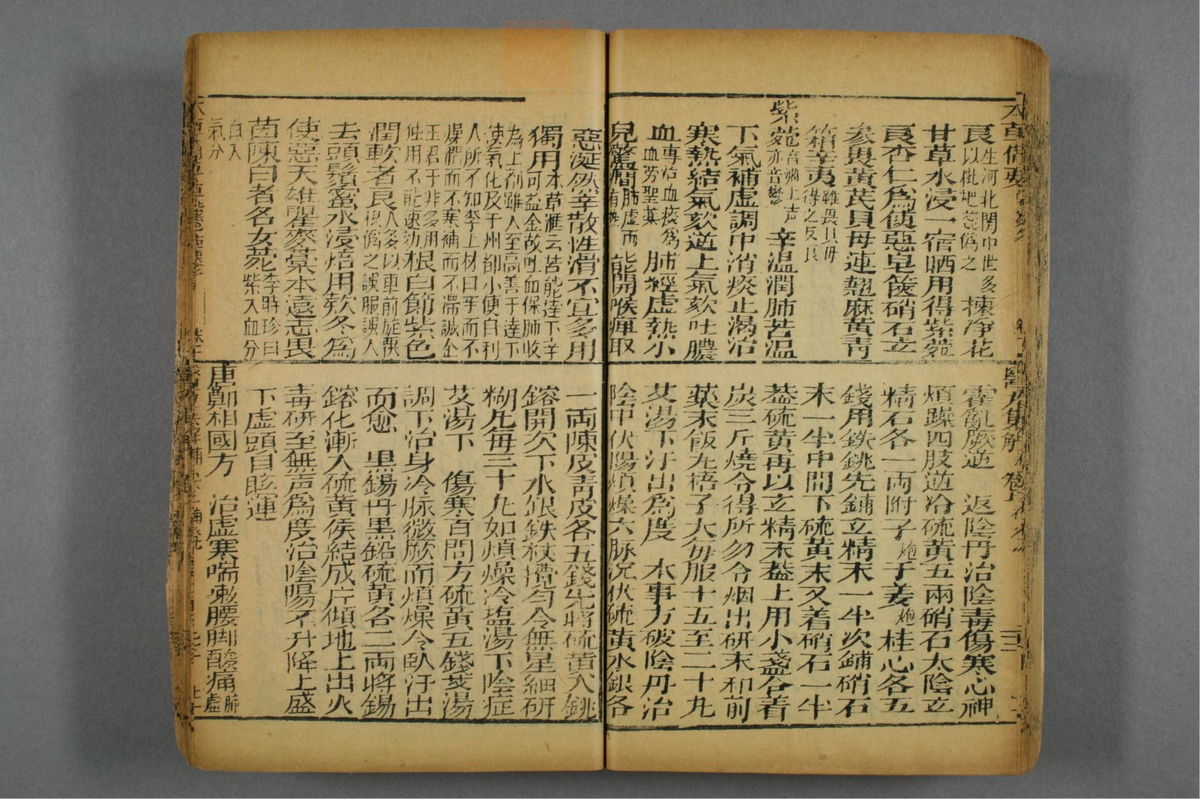 本草備要
良生河北関中世多以枇地蕋偽之 揀淨花
甘草水浸一宿晒用得紫菀
良杏仁爲使惡皂筴硝石玄
參畏黃芪貝母連翹麻黃青
箱辛夷雖畏貝母得之反良
紫菀音剜上声亦音鬱 辛温潤肺苦温
下氣補虛調中消痰止渴治
寒熱結氣欬逆上氣欬吐膿
血專治血痰為血劳聖藥 肺經虛熱小
兒驚癎肺虛而有熱 能開喉痺取
惡涎然辛散性滑不宜多用
獨用本草滙云苦能達下辛可益金故吐血保肺收
為上剂雖人至高善于達下使氣化及于州都小便自利
人所不知李士材曰辛而不燥潤而不寒補而不滯誠金
玉君子非多用独用不能速効 根白節紫色
潤軟者良人多以車前旋覆根偽之誤服誤人
去頭鬚蜜水浸焙用欵冬爲
使惡天雄瞿麥藁本遠志畏
茵陳白者名女菀李時珍曰紫入血分
白入氣分
醫方集解
霍亂厥逆 返陰丹治陰毒傷寒心神
煩躁四肢逆冷硫黃五兩硝石太陰玄
精石各一両附子炮干姜炮桂心各五
錢用鉄銚先鋪玄精末一半次鋪硝石
末一半中間下硫黃末又着硝石一半
葢硫黃再以玄精末葢上用小盞合着
炭三斤燒令得所勿令烟出研末和前
藥末飯丸梧子大每服十五至二十丸
艾湯下汗出爲度 本事方破陰丹治
陰中伏陽煩燥六脉沉伏硫黃水銀各
一両陳皮青皮各五錢先將硫黃入銚
鎔開次下水銀鉄杖攪匀令無星細研
糊丸每三十丸如煩燥冷塩湯下陰症
艾湯下 傷寒百問方硫黃五錢艾湯
調下治身冷脉微厥而煩燥令臥汗出
而愈 黒錫丹黒鉛硫黃各二両將錫
鎔化漸入硫黃侯結成片傾地上出火
毒研至無声爲度治陰陽不升降上盛
下虛頭目眩運
唐鄭相國方 治虛寒喘嗽腰脚酸痛肺虛